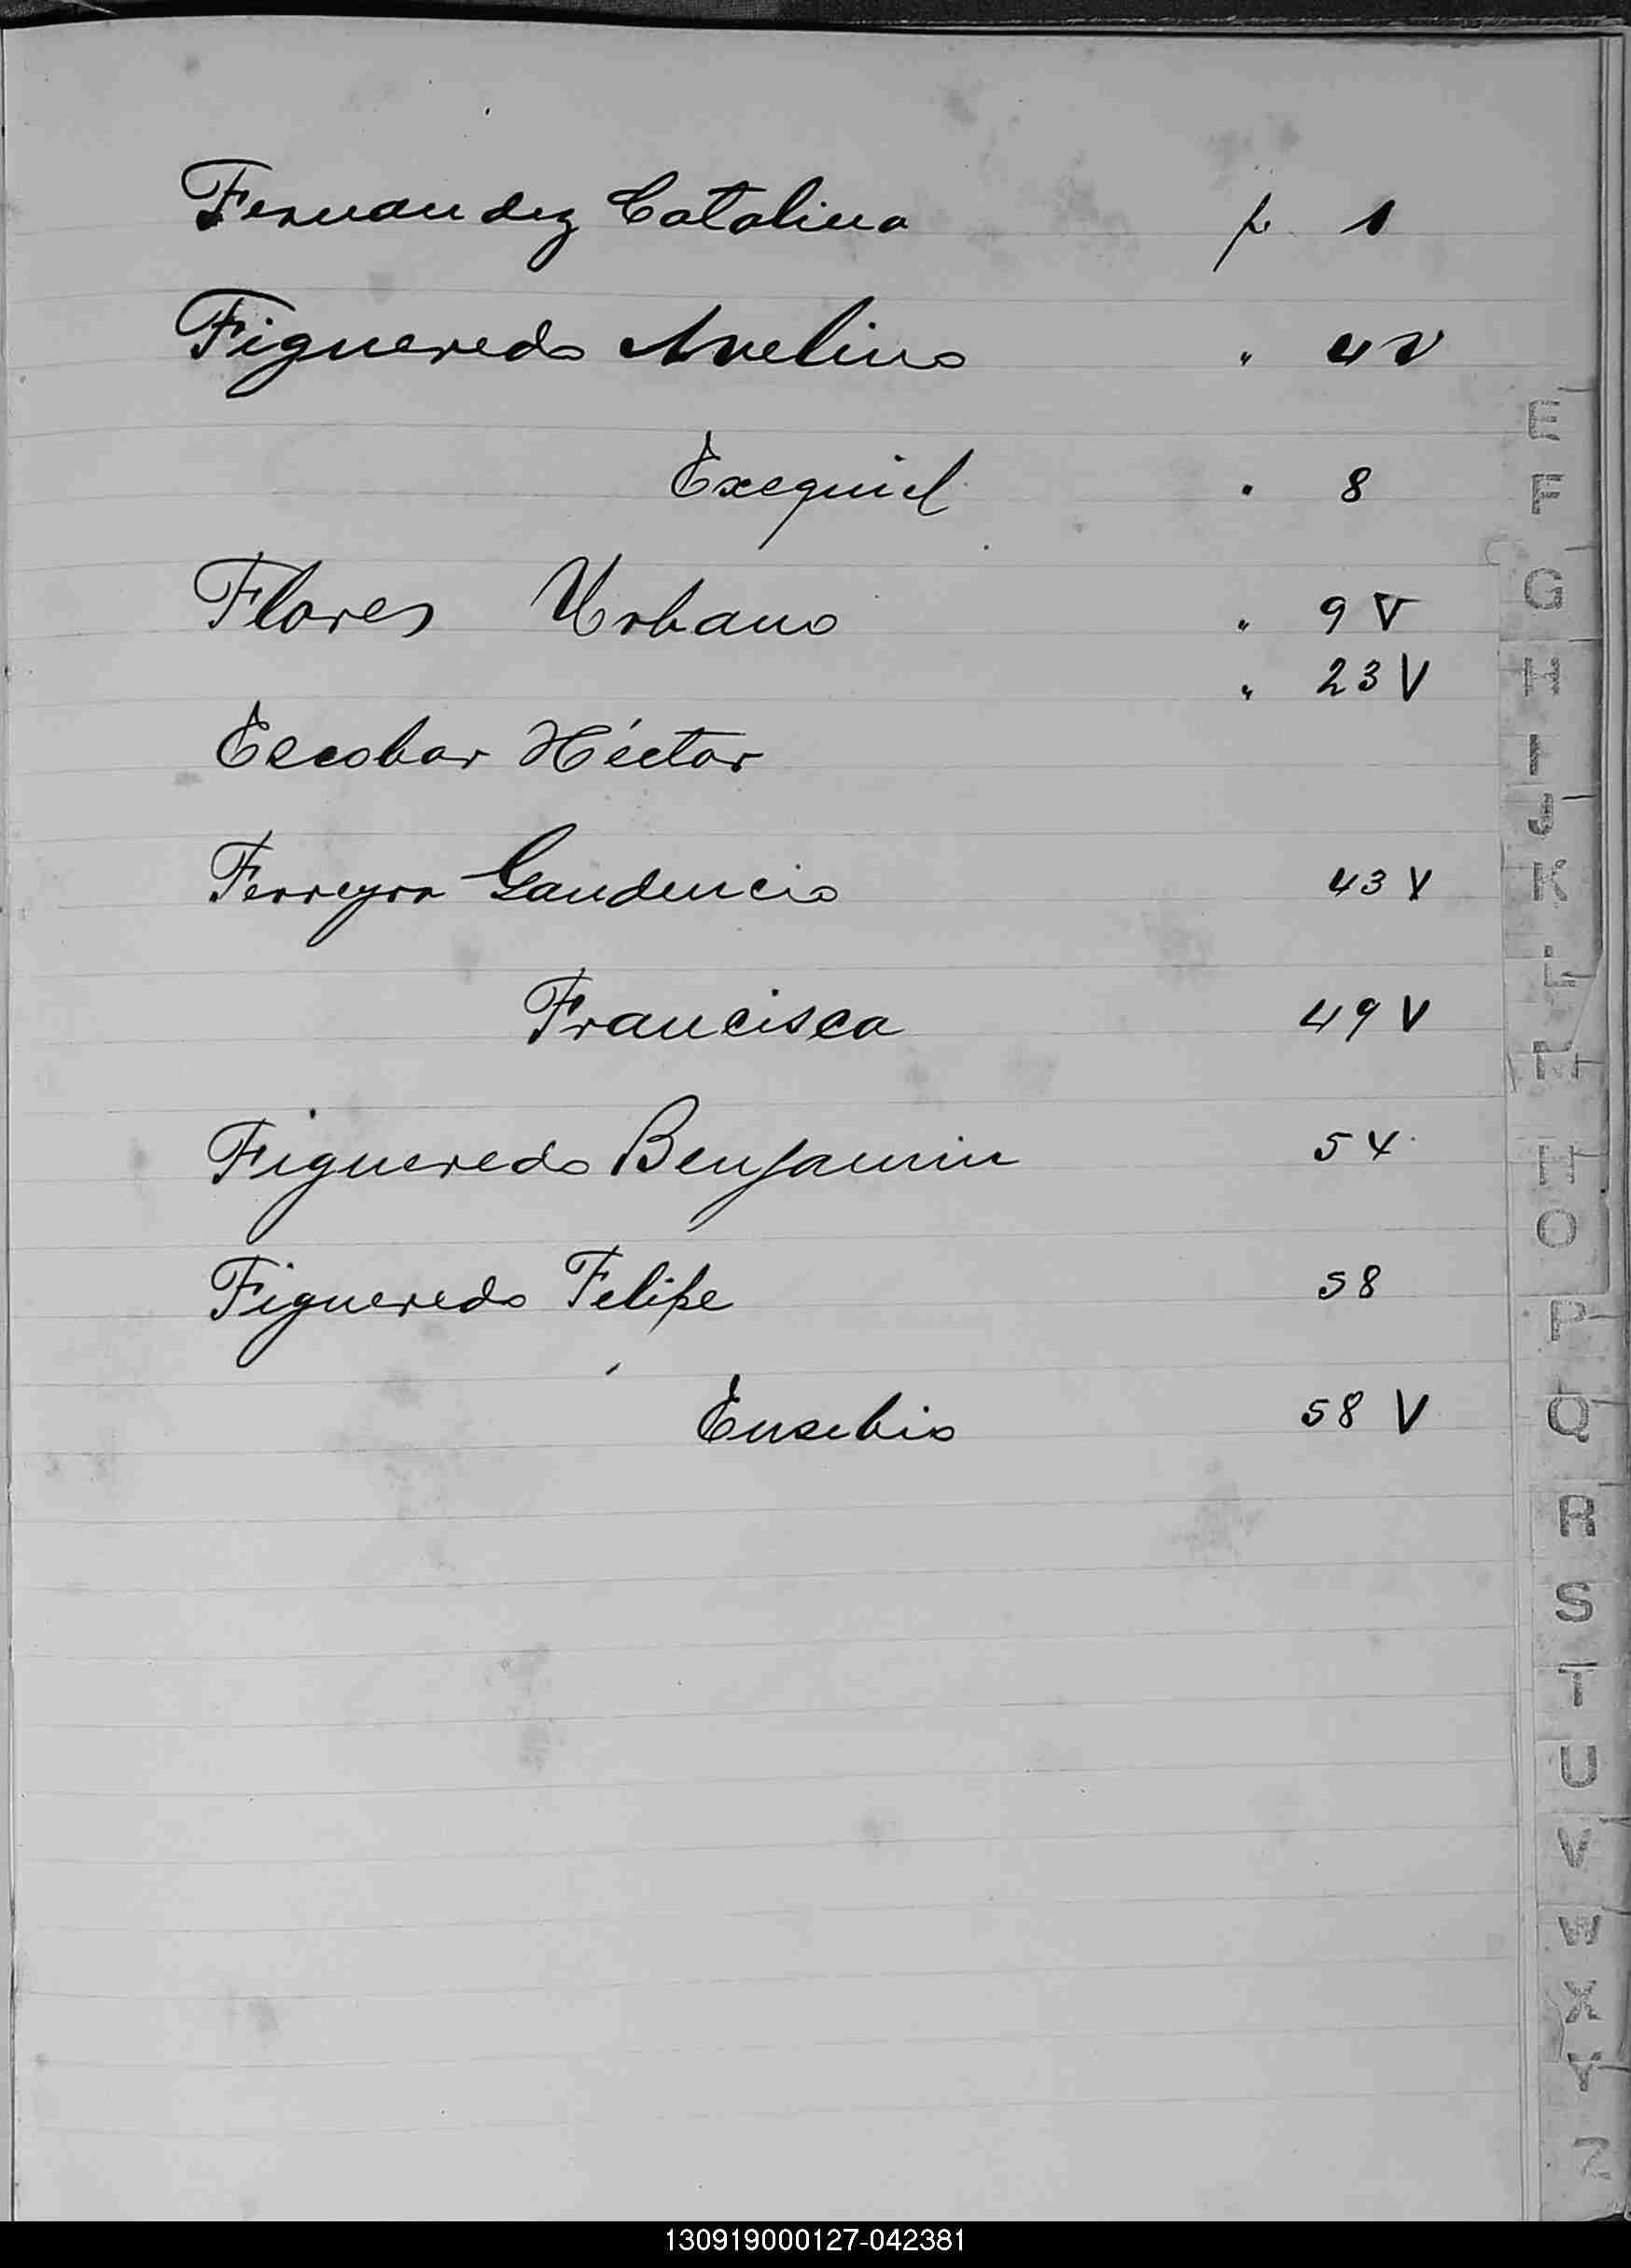 Fernandez Catalina f. 1
Figueredo Avelino " 4 V
Exequiel " 8
Flores Urbano " 9 V
" 23 V
Escobar Héctor
Ferreyra Gaudencio 43 V
Francisca 49 V
Figueredo Benjamin 54
Figueredo Felipe 58
Eusebio 58 V
E
F
G
H
I
J
K
L
M
N
O
P
Q
R
S
T
U
V
W
X
Y
Z
130919000127-042381